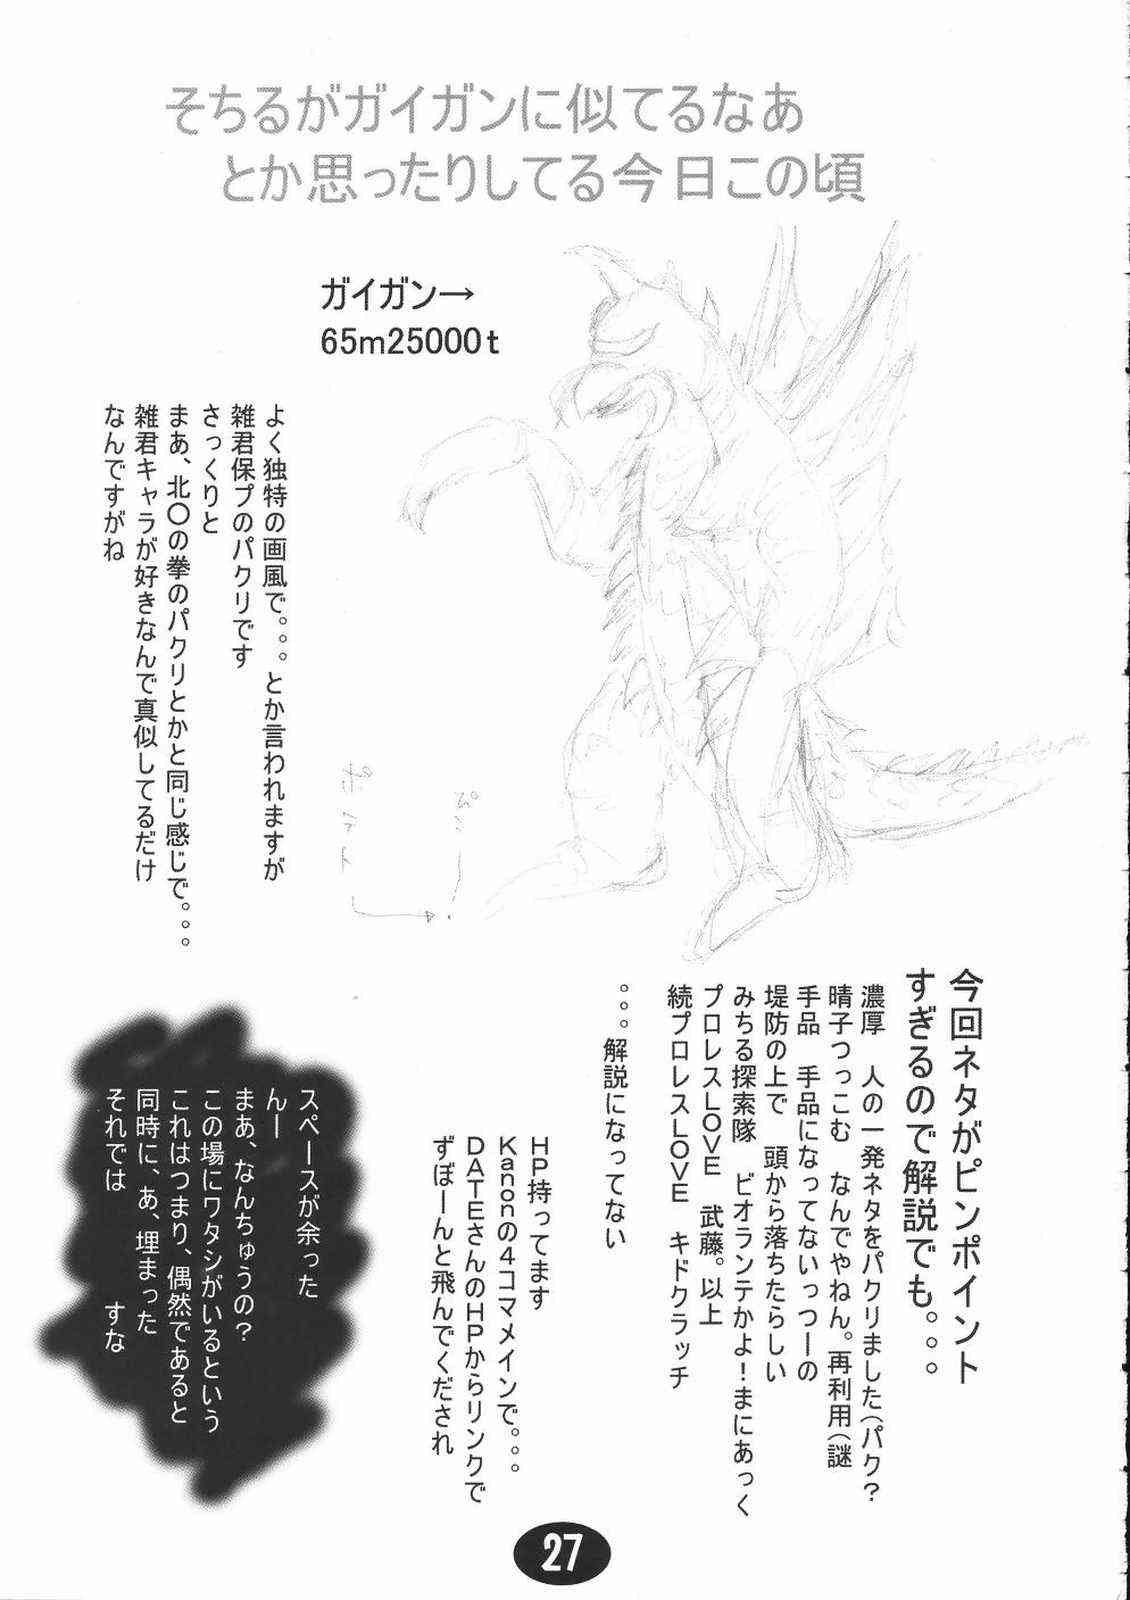 そちるがガイガンに似てるなあ
とか思ったりしてる今日この頃
ガイガン→
65m25000t
よく独特の画風で。。。とか言われますが
雑君保プのパクリです
さっくりと
まあ、北〇の拳のパクリとかと同じ感じで。。。
雑君キャラが好きなんで真似してるだけ
なんですがね
今回ネタがピンポイント
すぎるので解説でも。。。
濃厚　人の一発ネタをパクリました（パク？
晴子つっこむ　なんでやねん。再利用（謎
手品　手品になってないっつーの
堤防の上で　頭から落ちたらしい
みちる探索隊　ビオランテかよ！まにあっく
プロレスLOVE　武藤。以上
続プロレスLOVE　キドクラッチ
。。。解説になってない
HP持ってます
Kanonの4コマメインで。。。
DATEさんのHPからリンクで
ずぼーんと飛んでくだされ
スペースが余った
んー
まあ、なんちゅうの？
この場にワタシがいるという
これはつまり、偶然であると
同時に、あ、埋まった
それでは　　　　すな
27